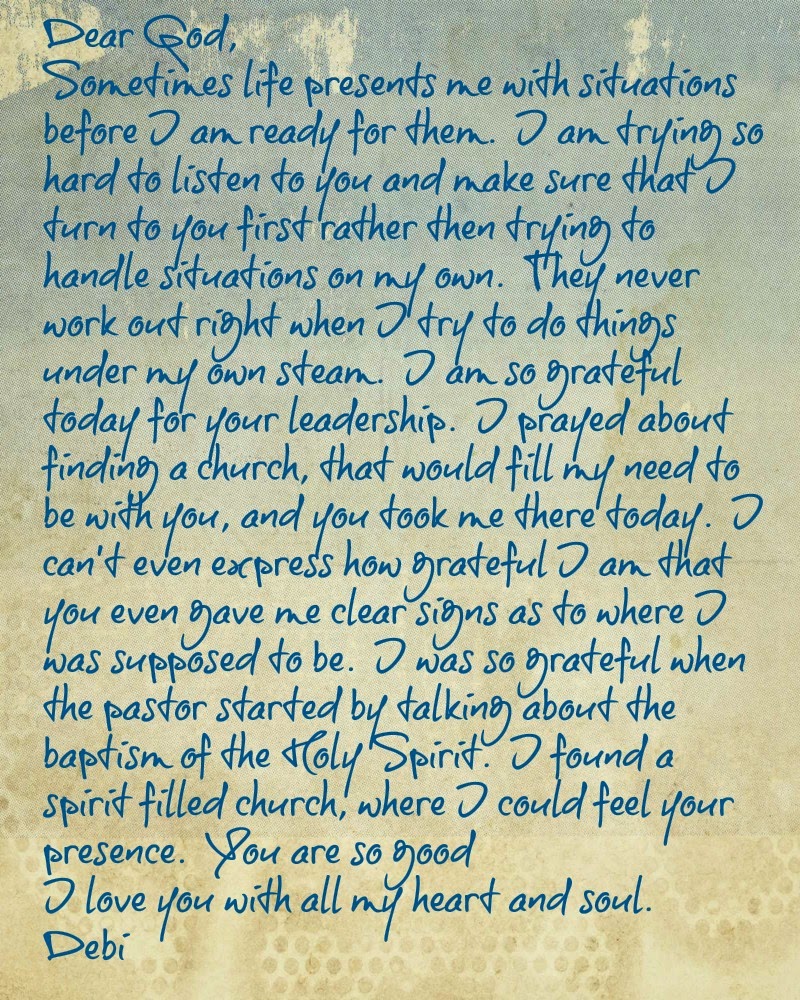 Dear God,
Sometimes life presents me with situations
before I am ready for them. I am trying so
hard to listen to you and make sure that I
turn to you first rather then trying to
handle situations on my own. They never
work out right when I try to do things
under my own steam. I am so grateful
today for your leadership. I prayed about
finding a church, that would fill my need to
be with you, and you took me there today. I
can't even express how grateful I am that
you even gave me clear signs as to where I
was supposed to be. I was so grateful when
the pastor started by talking about the
baptism of the Holy Spirit. I found a
spirit filled church, where I could feel your
presence. You are so good
I love you with all my heart and soul.
Debi